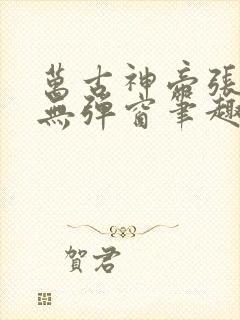 萬古神帝張
無彈窗筆趣
賀君